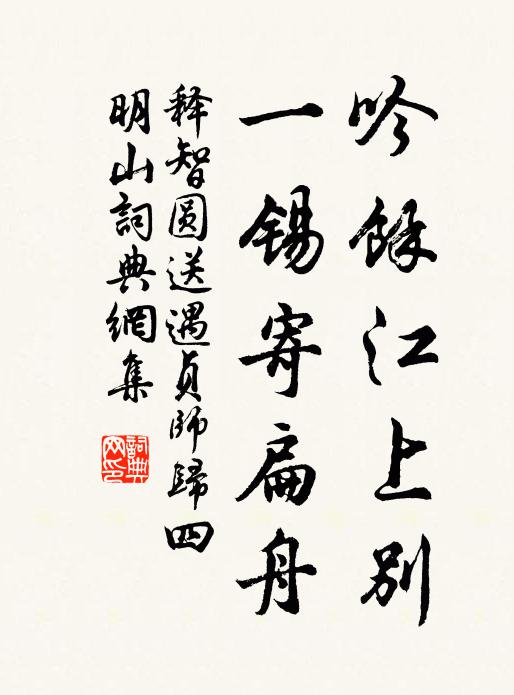 吟餘江上別
一錫寄扁舟
释智圆送遇貞師歸四
明山詞典網集
詞典网印